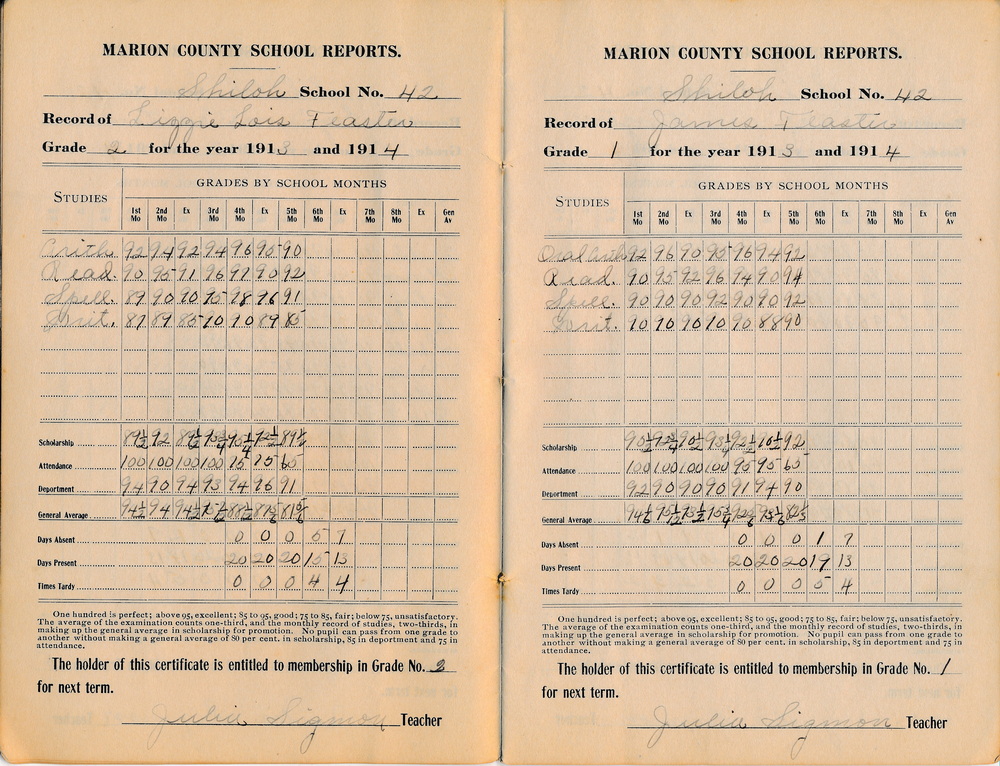 MARION COUNTY SCHOOL REPORTS.
Shiloh School No. 42
Record of Lizzie Lois Feaster
Grade 2 for the year 1913 and 1914
STUDIES
GRADES BY SCHOOL MONTHS
1st Mo 2nd Mo Ex 3rd Mo 4th Mo Ex 5th Mo 6th Mo Ex 7th Mo 8th Mo Ex Gen Av
Arith. 92 94 92 94 96 95 90
Read. 90 95 91 96 97 90 92
Spell. 89 90 90 95 98 96 91
Writ. 87 89 85 90 90 89 85
Scholarship 89½ 92 89½ 89½
Attendance 100 100 100 100 75 75 65
Department 94 90 94 93 94 96 91
General Average 94½ 94 94½
Days Absent 0 0 0 5 7
Days Present 20 20 20 15 13
Times Tardy 0 0 0 4 4
One hundred is perfect; above 95, excellent; 85 to 95, good; 75 to 85, fair; below 75, unsatisfactory.
The average of the examination counts one-third, and the monthly record of studies, two-thirds, in
making up the general average in scholarship for promotion. No pupil can pass from one grade to
another without making a general average of 80 per cent. in scholarship, 85 in department and 75 in
attendance.
The holder of this certificate is entitled to membership in Grade No.
for next term.
Julia Sigmon Teacher
MARION COUNTY SCHOOL REPORTS.
Shiloh School No. 42
Record of James Feaster
Grade 1 for the year 1913 and 1914
STUDIES
GRADES BY SCHOOL MONTHS
1st Mo 2nd Mo Ex 3rd Mo 4th Mo Ex 5th Mo 6th Mo Ex 7th Mo 8th Mo Ex Gen Av
Oral Arith 92 96 90 95 96 94 92
Read. 90 95 92 96 94 90 94
Spell. 90 90 90 92 90 90 92
Writ. 90 90 90 90 90 88 90
Scholarship 90½ 90½ 92
Attendance 100 100 100 100 95 95 65
Department 92 90 90 90 91 94 90
General Average
Days Absent 0 0 0 1 7
Days Present 20 20 20 19 13
Times Tardy 0 0 0 5 4
One hundred is perfect; above 95, excellent; 85 to 95, good; 75 to 85, fair; below 75, unsatisfactory.
The average of the examination counts one-third, and the monthly record of studies, two-thirds, in
making up the general average in scholarship for promotion. No pupil can pass from one grade to
another without making a general average of 80 per cent. in scholarship, 85 in department and 75 in
attendance.
The holder of this certificate is entitled to membership in Grade No. 1
for next term.
Julia Sigmon Teacher